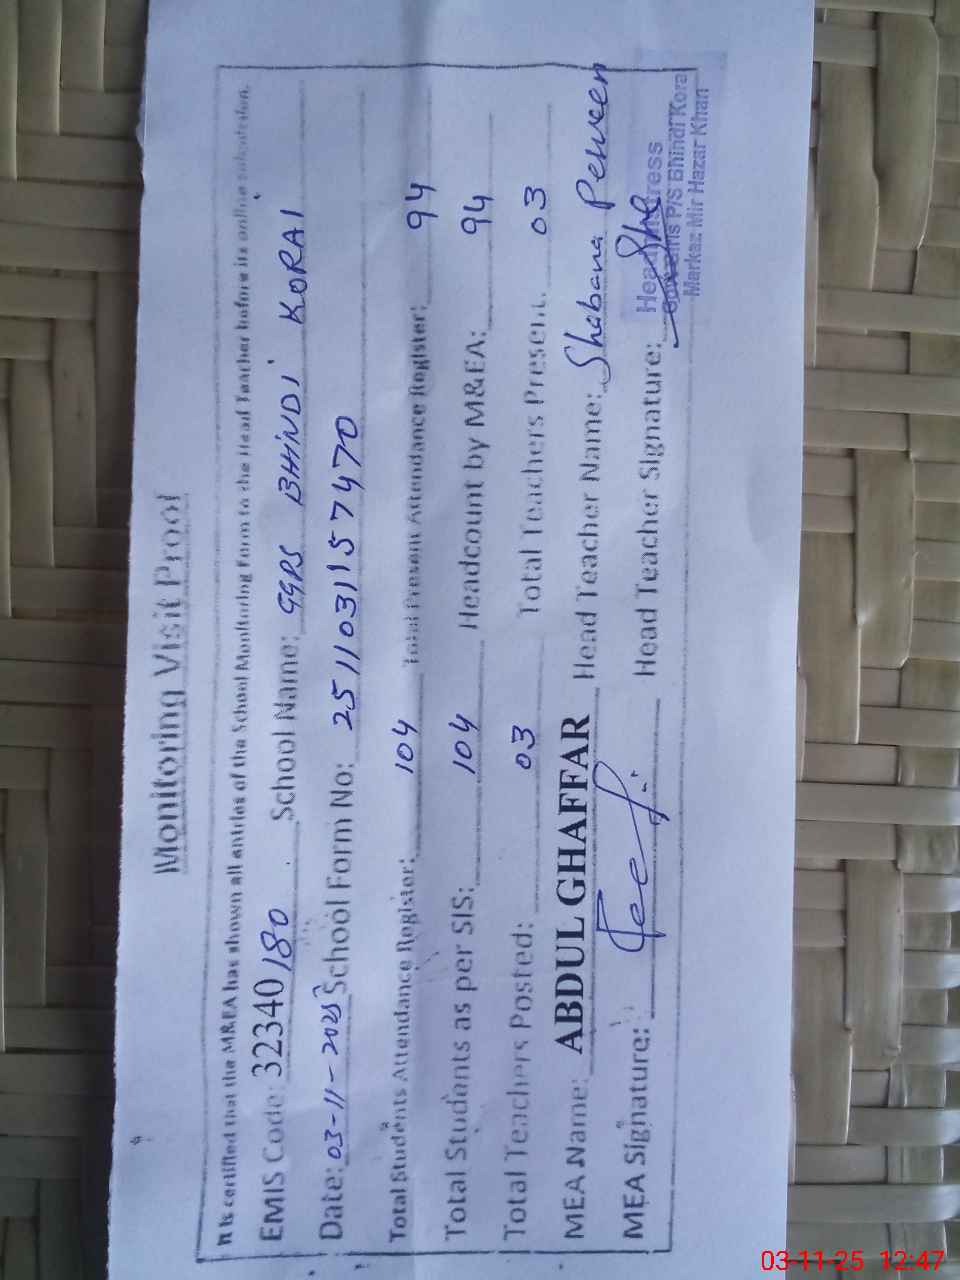 Monitoring Visit Proof
It is certified that the M&EA has shown all entries of the School Monitoring Form to the Head Teacher before its online submission.
EMIS Code: 32340180 School Name: GGPS BHINDI KORAI
Date: 03-11-2025 School Form No: 251103115747D
Total Students Attendance Register: 104 Total Present Attendance Register: 94
Total Students as per SIS: 104 Headcount by M&EA: 94
Total Teachers Posted: 03 Total Teachers Present: 03
MEA Name: ABDUL GHAFFAR Head Teacher Name: Shabana Perveen
MEA Signature: Head Teacher Signature:
Headmistress
P/S Bhindi Korai
Markaz Mir Hazar Khan
03-11-25 12:47